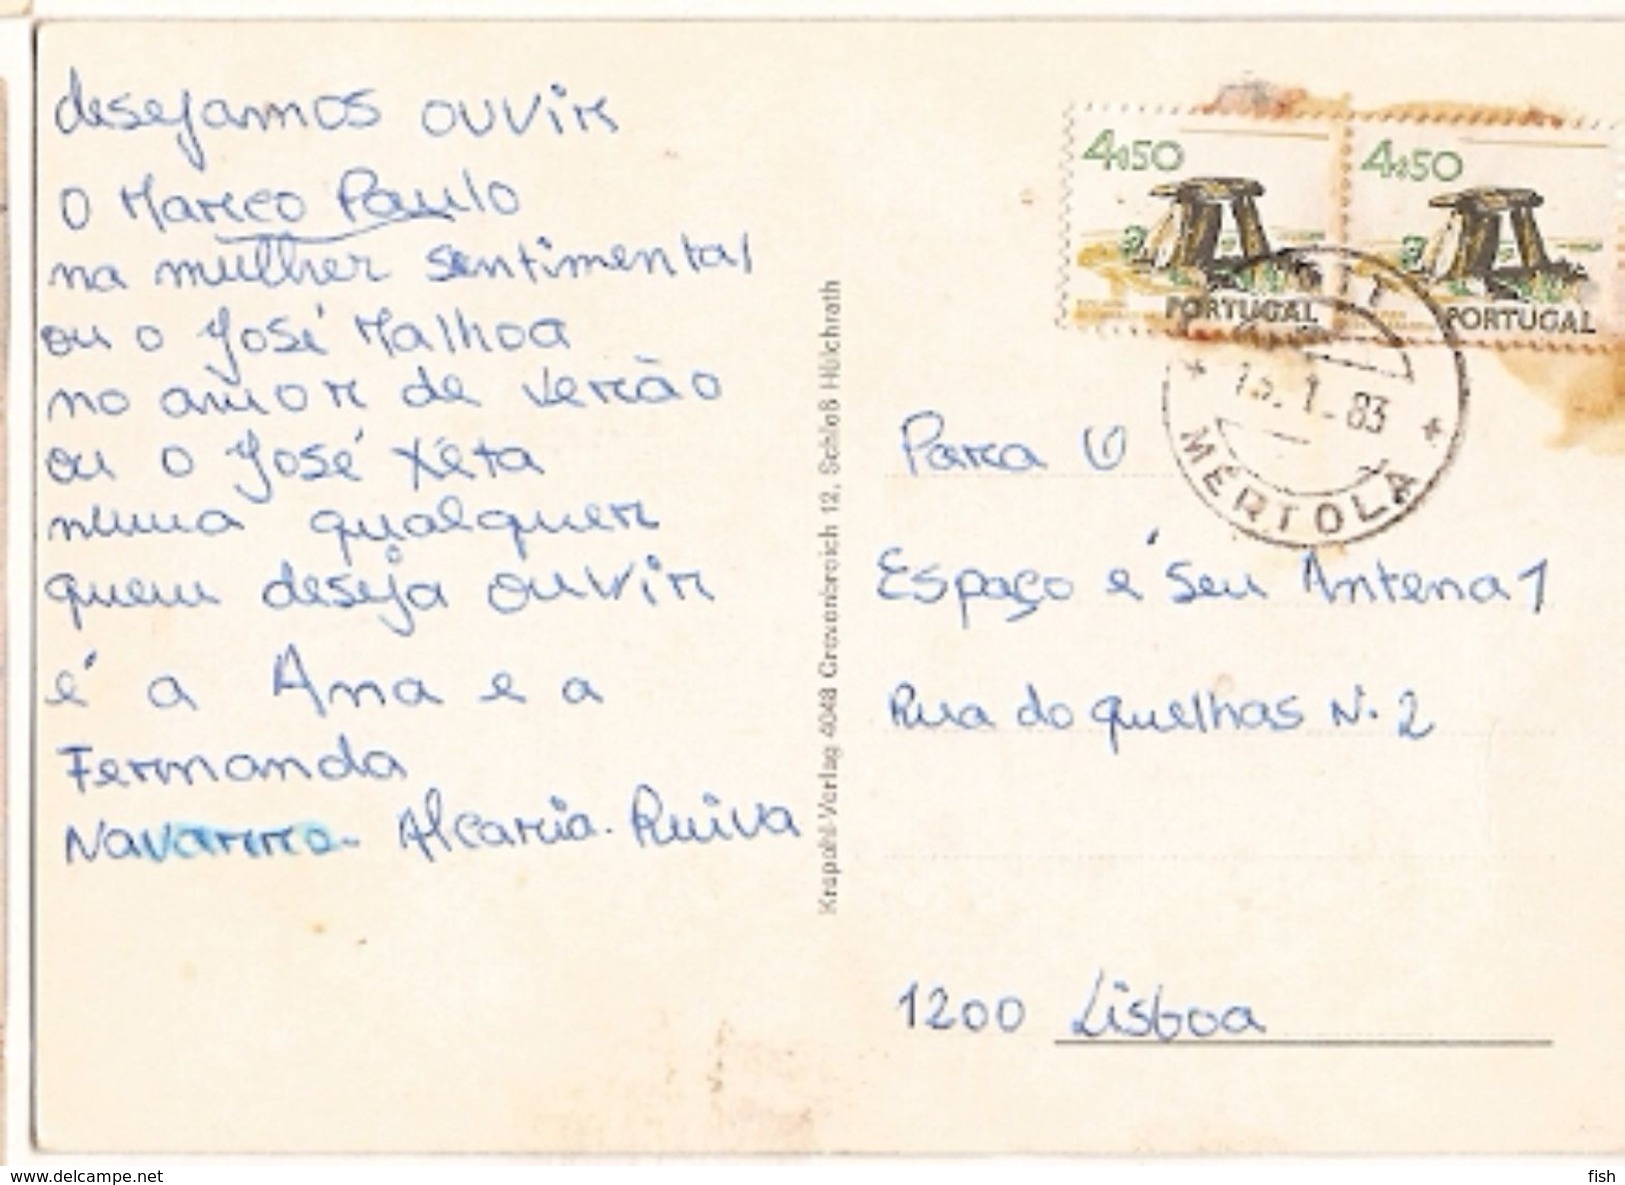 desejamos ouvir
o Marco Paulo
na mulher sentimental
ou o José Malhoa
no amor de verão
ou o José Xéta
numa qualquer
quem deseja ouvir
é a Ana e a
Fernanda
Navarro - Alcaria-Ruiva
Krapohl-Verlag 4048 Grevenbroich 12, Schloß Hülchrath
4$50
PORTUGAL
4$50
PORTUGAL
1. 83
MÉRTOLA
Para O
Espaço é Seu Antena 1
Rua do quelhas N. 2
1200 Lisboa
delcampe.net
fish